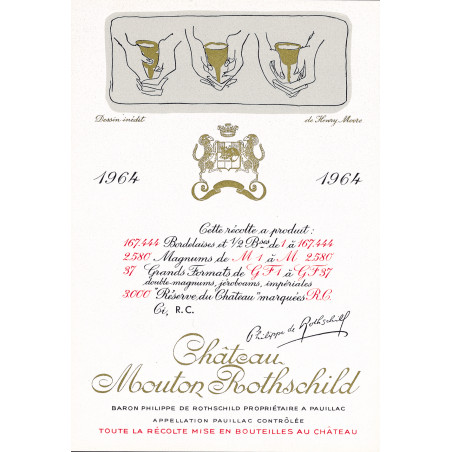 Dessin inédit de Henry Moore
1964 1964
Cette récolte a produit :
167.444 Bordelaises et 1/2 Bses de 1 à 167.444
2.580 Magnums de M 1 à M 2.580
37 Grands Formats de G F 1 à G F 37
double-magnums, jéroboams, impériales
3.000 "Réserve du Château" marquées R.C.
Ci, R.C.
Philippe de Rothschild
Château
Mouton Rothschild
BARON PHILIPPE DE ROTHSCHILD PROPRIÉTAIRE A PAUILLAC
APPELLATION PAUILLAC CONTRÔLÉE
TOUTE LA RÉCOLTE MISE EN BOUTEILLES AU CHÂTEAU